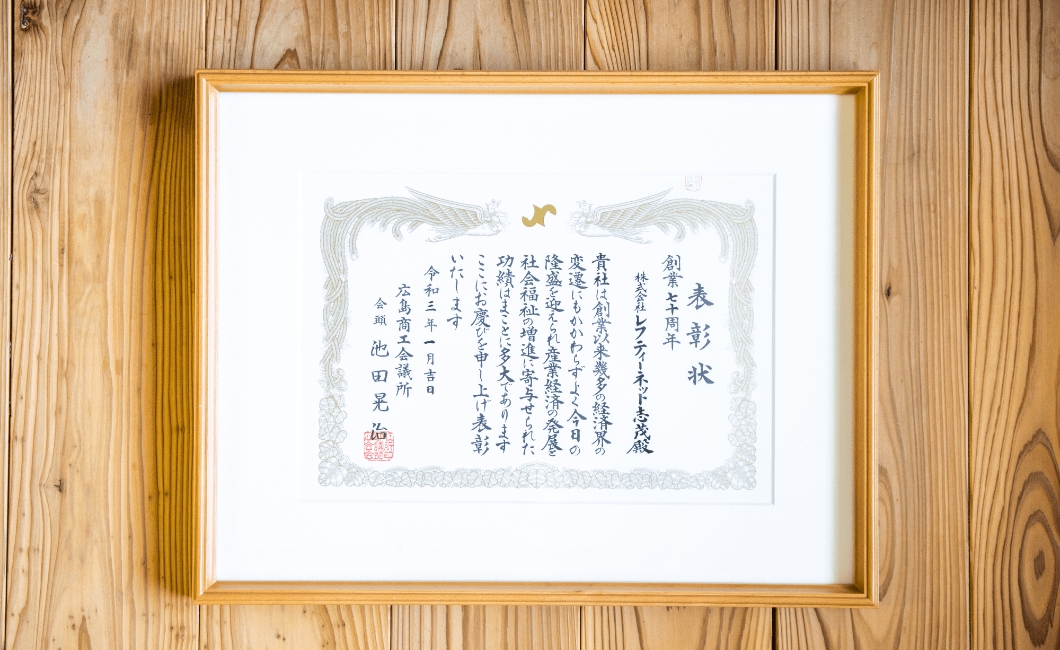 表彰状
創業七十周年
株式会社レフティーネッド志茂殿
貴社は創業以来幾多の経済界の
変遷にもかかわらずよく今日の
隆盛を迎えられ産業経済の発展を
社会福祉の増進に寄与せられた
功績はまことに多大であります
ここにお慶びを申し上げ表彰
いたします
令和三年一月吉日
広島商工会議所
会頭 池田晃治